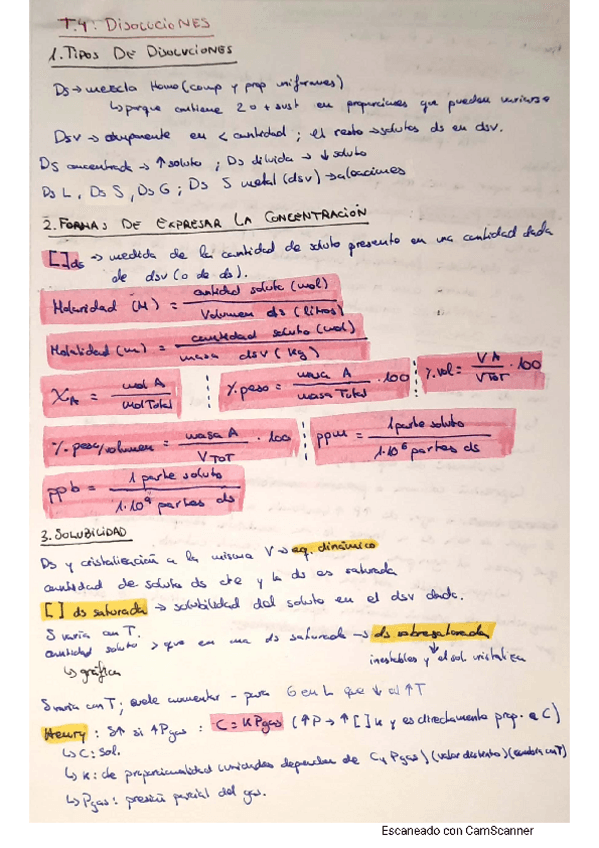 T.4: DISOLUCIONES
1. TIPOS DE DISOLUCIONES
Ds → mezcla Homo (comp y prop uniformes)
↳ porque contiene 2 o + sust en proporciones que pueden variarse
Dsv → componente en < cantidad ; el resto → solutos ds en dsv.
Ds concentrada → ↑ soluto ; Ds diluida → ↓ soluto
Ds L, Ds S, Ds G ; Ds S metal (dsv) → aleaciones
2. FORMAS DE EXPRESAR LA CONCENTRACIÓN
[ ]ds → medida de la cantidad de soluto presente en una cantidad dada
de dsv (o de ds).
Molaridad (M) = cantidad soluto (mol) / Volumen ds (litros)
Molalidad (m) = cantidad soluto (mol) / masa dsv (kg)
XA = mol A / mol Total   % peso = masa A / masa Total · 100   % vol = VA / VTOT · 100
% peso/volumen = masa A / VTOT · 100   ppm = 1 parte soluto / 1·10⁶ partes ds
ppb = 1 parte soluto / 1·10⁹ partes ds
3. SOLUBILIDAD
Ds y cristalización a la misma V → eq. dinámico
cantidad de soluto ds cte y la ds es saturada
[ ] ds saturada → solubilidad del soluto en el dsv dado.
S varía con T.
cantidad soluto > que en una ds saturada → ds sobresaturada
↳ gráfica
inestables y el sol cristaliza
S varía con T; suele aumentar - para G en L que ↓ al ↑T
Henry : S↑ si ↑Pgas : C = K Pgas (↑P → ↑[ ] K y es directamente prop. a C)
↳ C: sol.
↳ K: de proporcionalidad (unidades dependen de C y Pgas) (valor distinto) (cambia con T)
↳ Pgas: presión parcial del gas.
Escaneado con CamScanner